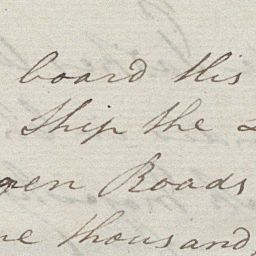 board this
Ship the
Roads
thousand